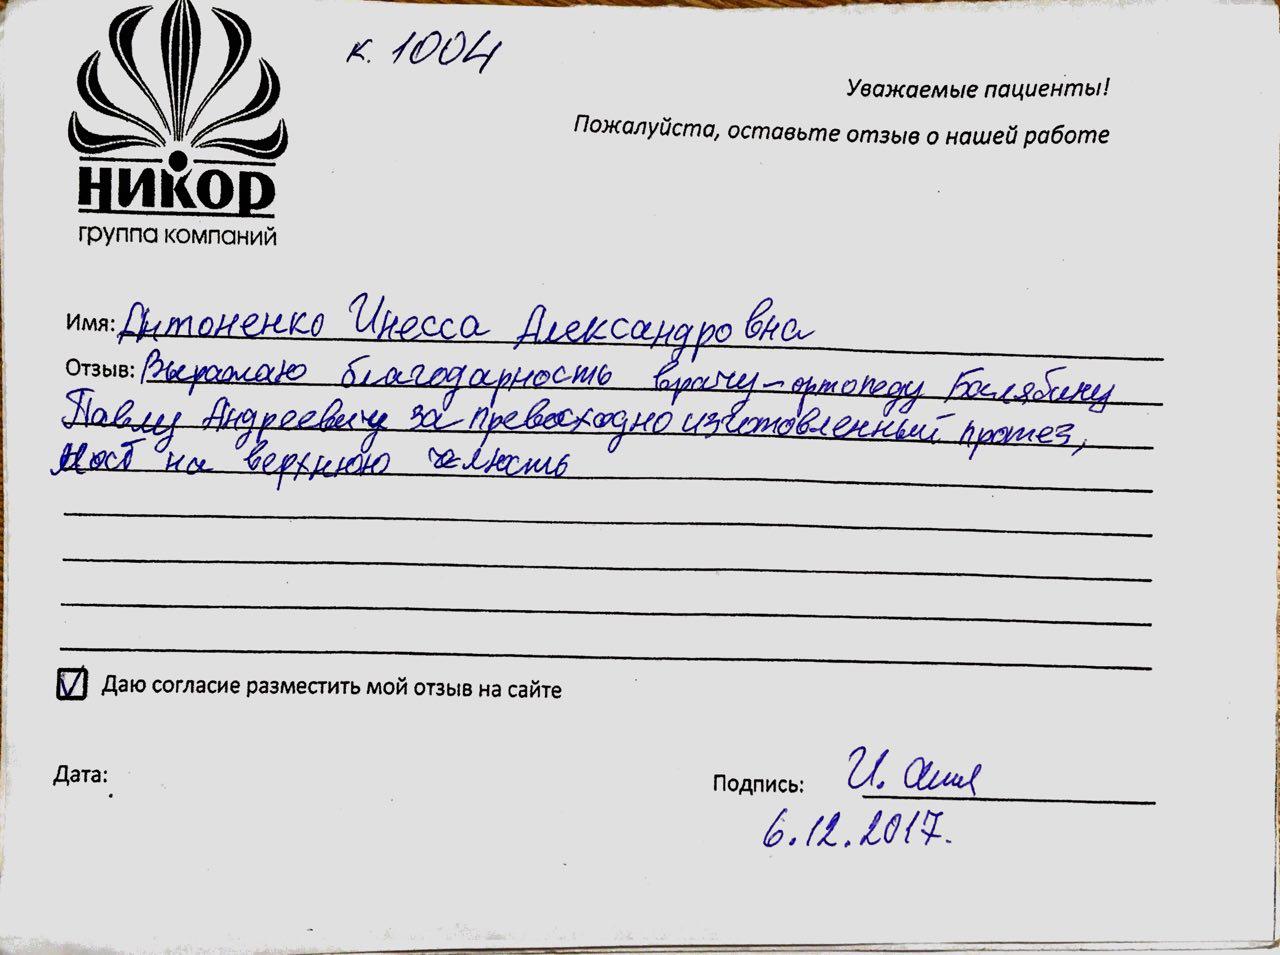 к. 1004
Уважаемые пациенты!
Пожалуйста, оставьте отзыв о нашей работе
НИКОР
группа компаний
Имя: Антоненко Инесса Александровна
Отзыв: Выражаю благодарность врачу-ортопеду
Павлу Андреевичу за превосходно изготовленный протез,
мост на верхнюю челюсть
Даю согласие разместить мой отзыв на сайте
Дата:
Подпись: И.
6.12.2017.